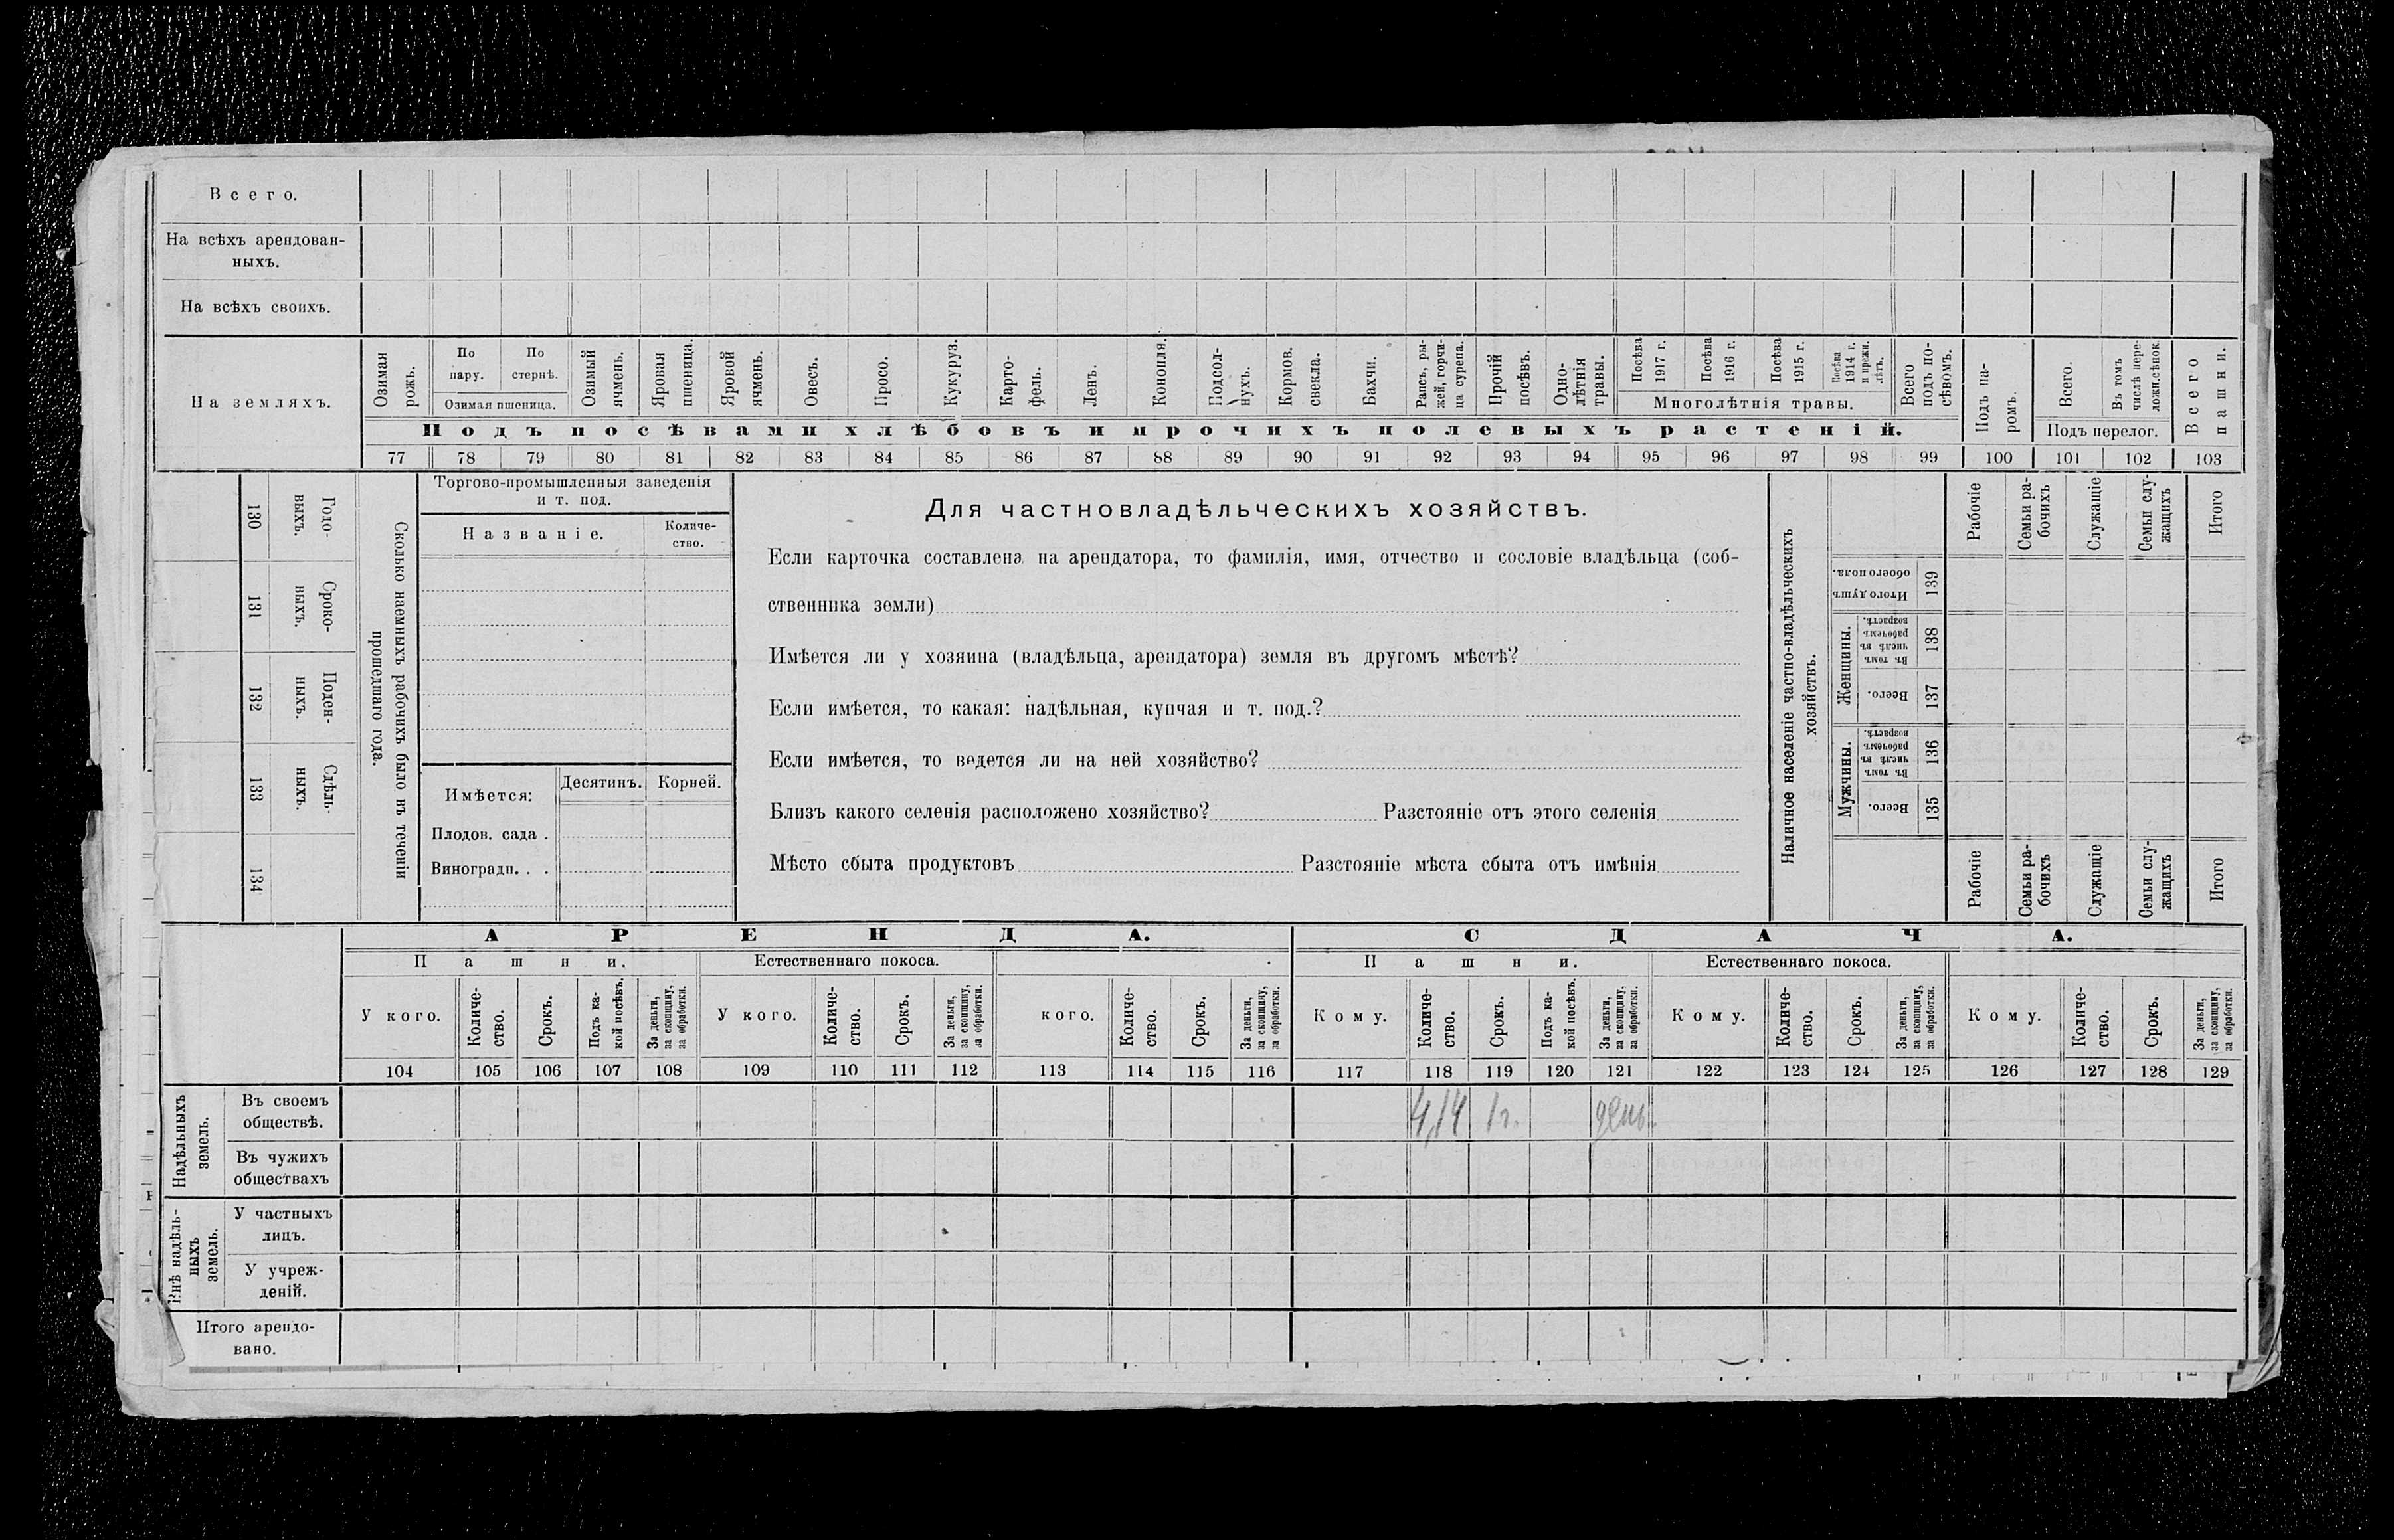 Всего.
На всѣхъ арендован-
ныхъ.
На всѣхъ своихъ.
На земляхъ.
Озимая рожь.
По пару.
По стернѣ.
Озимая пшеница.
Озимый ячмень.
Яровая пшеница.
Яровой ячмень.
Овесъ.
Просо.
Кукуруз.
Карто-
фель.
Ленъ.
Конопля.
Подсол-
нухъ.
Кормов. свекла.
Бахчи.
Рапсъ, ры-
жей, горчи-
ца сурепа.
Прочій посѣвъ.
Одно-
лѣтнія травы.
Посѣва 1917 г.
Посѣва 1916 г.
Посѣва 1915 г.
Посѣва 1914 г. и прежн. лѣтъ.
Многолѣтнія травы.
Всего подъ по-
сѣвомъ.
Подъ посѣвами хлѣбовъ и прочихъ полевыхъ растеній.
Подъ па-
ромъ.
Всего.
Въ томъ числѣ пере-
ложн. сѣнок.
Подъ перелог.
Всего пашни.
77 78 79 80 81 82 83 84 85 86 87 88 89 90 91 92 93 94 95 96 97 98 99 100 101 102 103
130
Годо-
выхъ.
131
Сроко-
ныхъ.
132
Поден-
ныхъ.
133
Сдѣль-
ныхъ.
134
Сколько наемныхъ рабочихъ было въ теченіи
прошедшаго года.
Торгово-промышленныя заведенія
и т. под.
Названіе.
Количе-
ство.
Имѣется:
Десятинъ.
Корней.
Плодов. сада .
Виноградн. . .
Для частновладѣльческихъ хозяйствъ.
Если карточка составлена на арендатора, то фамилія, имя, отчество и сословіе владѣльца (соб-
ственника земли)
Имѣется ли у хозяина (владѣльца, арендатора) земля въ другомъ мѣстѣ?
Если имѣется, то какая: надѣльная, купчая и т. под.?
Если имѣется, то ведется ли на ней хозяйство?
Близъ какого селенія расположено хозяйство? Разстояніе отъ этого селенія
Мѣсто сбыта продуктовъ Разстояніе мѣста сбыта отъ имѣнія
Наличное населеніе частно-владѣльческихъ
хозяйствъ.
Рабочіе
Семьи ра-
бочихъ
Служащіе
Семьи слу-
жащихъ
Итого
Итого душъ обоего пола.
139
Женщины.
Въ томъ числѣ въ рабочемъ возрастѣ.
138
Всего.
137
Мужчины.
Въ томъ числѣ въ рабочемъ возрастѣ.
136
Всего.
135
Рабочіе
Семьи ра-
бочихъ
Служащіе
Семьи слу-
жащихъ
Итого
АРЕНДА.
СДАЧА.
Пашни.
Естественнаго покоса.
Пашни.
Естественнаго покоса.
У кого.
Количе-
ство.
Срокъ.
Подъ ка-
кой посѣвъ.
За деньги, за скопщину, за обработки.
У кого.
Количе-
ство.
Срокъ.
За деньги, за скопщину, за обработки.
кого.
Количе-
ство.
Срокъ.
За деньги, за скопщину, за обработки.
Кому.
Количе-
ство.
Срокъ.
Подъ ка-
кой посѣвъ.
За деньги, за скопщину, за обработки.
Кому.
Количе-
ство.
Срокъ.
За деньги, за скопщину, за обработки.
Кому.
Количе-
ство.
Срокъ.
За деньги, за скопщину, за обработки.
104 105 106 107 108 109 110 111 112 113 114 115 116 117 118 119 120 121 122 123 124 125 126 127 128 129
Надѣльныхъ
земель.
Въ своемъ
обществѣ.
4,14 1 г. ден.
Въ чужихъ
обществахъ
Внѣ надѣль-
ныхъ
земель.
У частныхъ
лицъ.
У учреж-
деній.
Итого арендо-
вано.